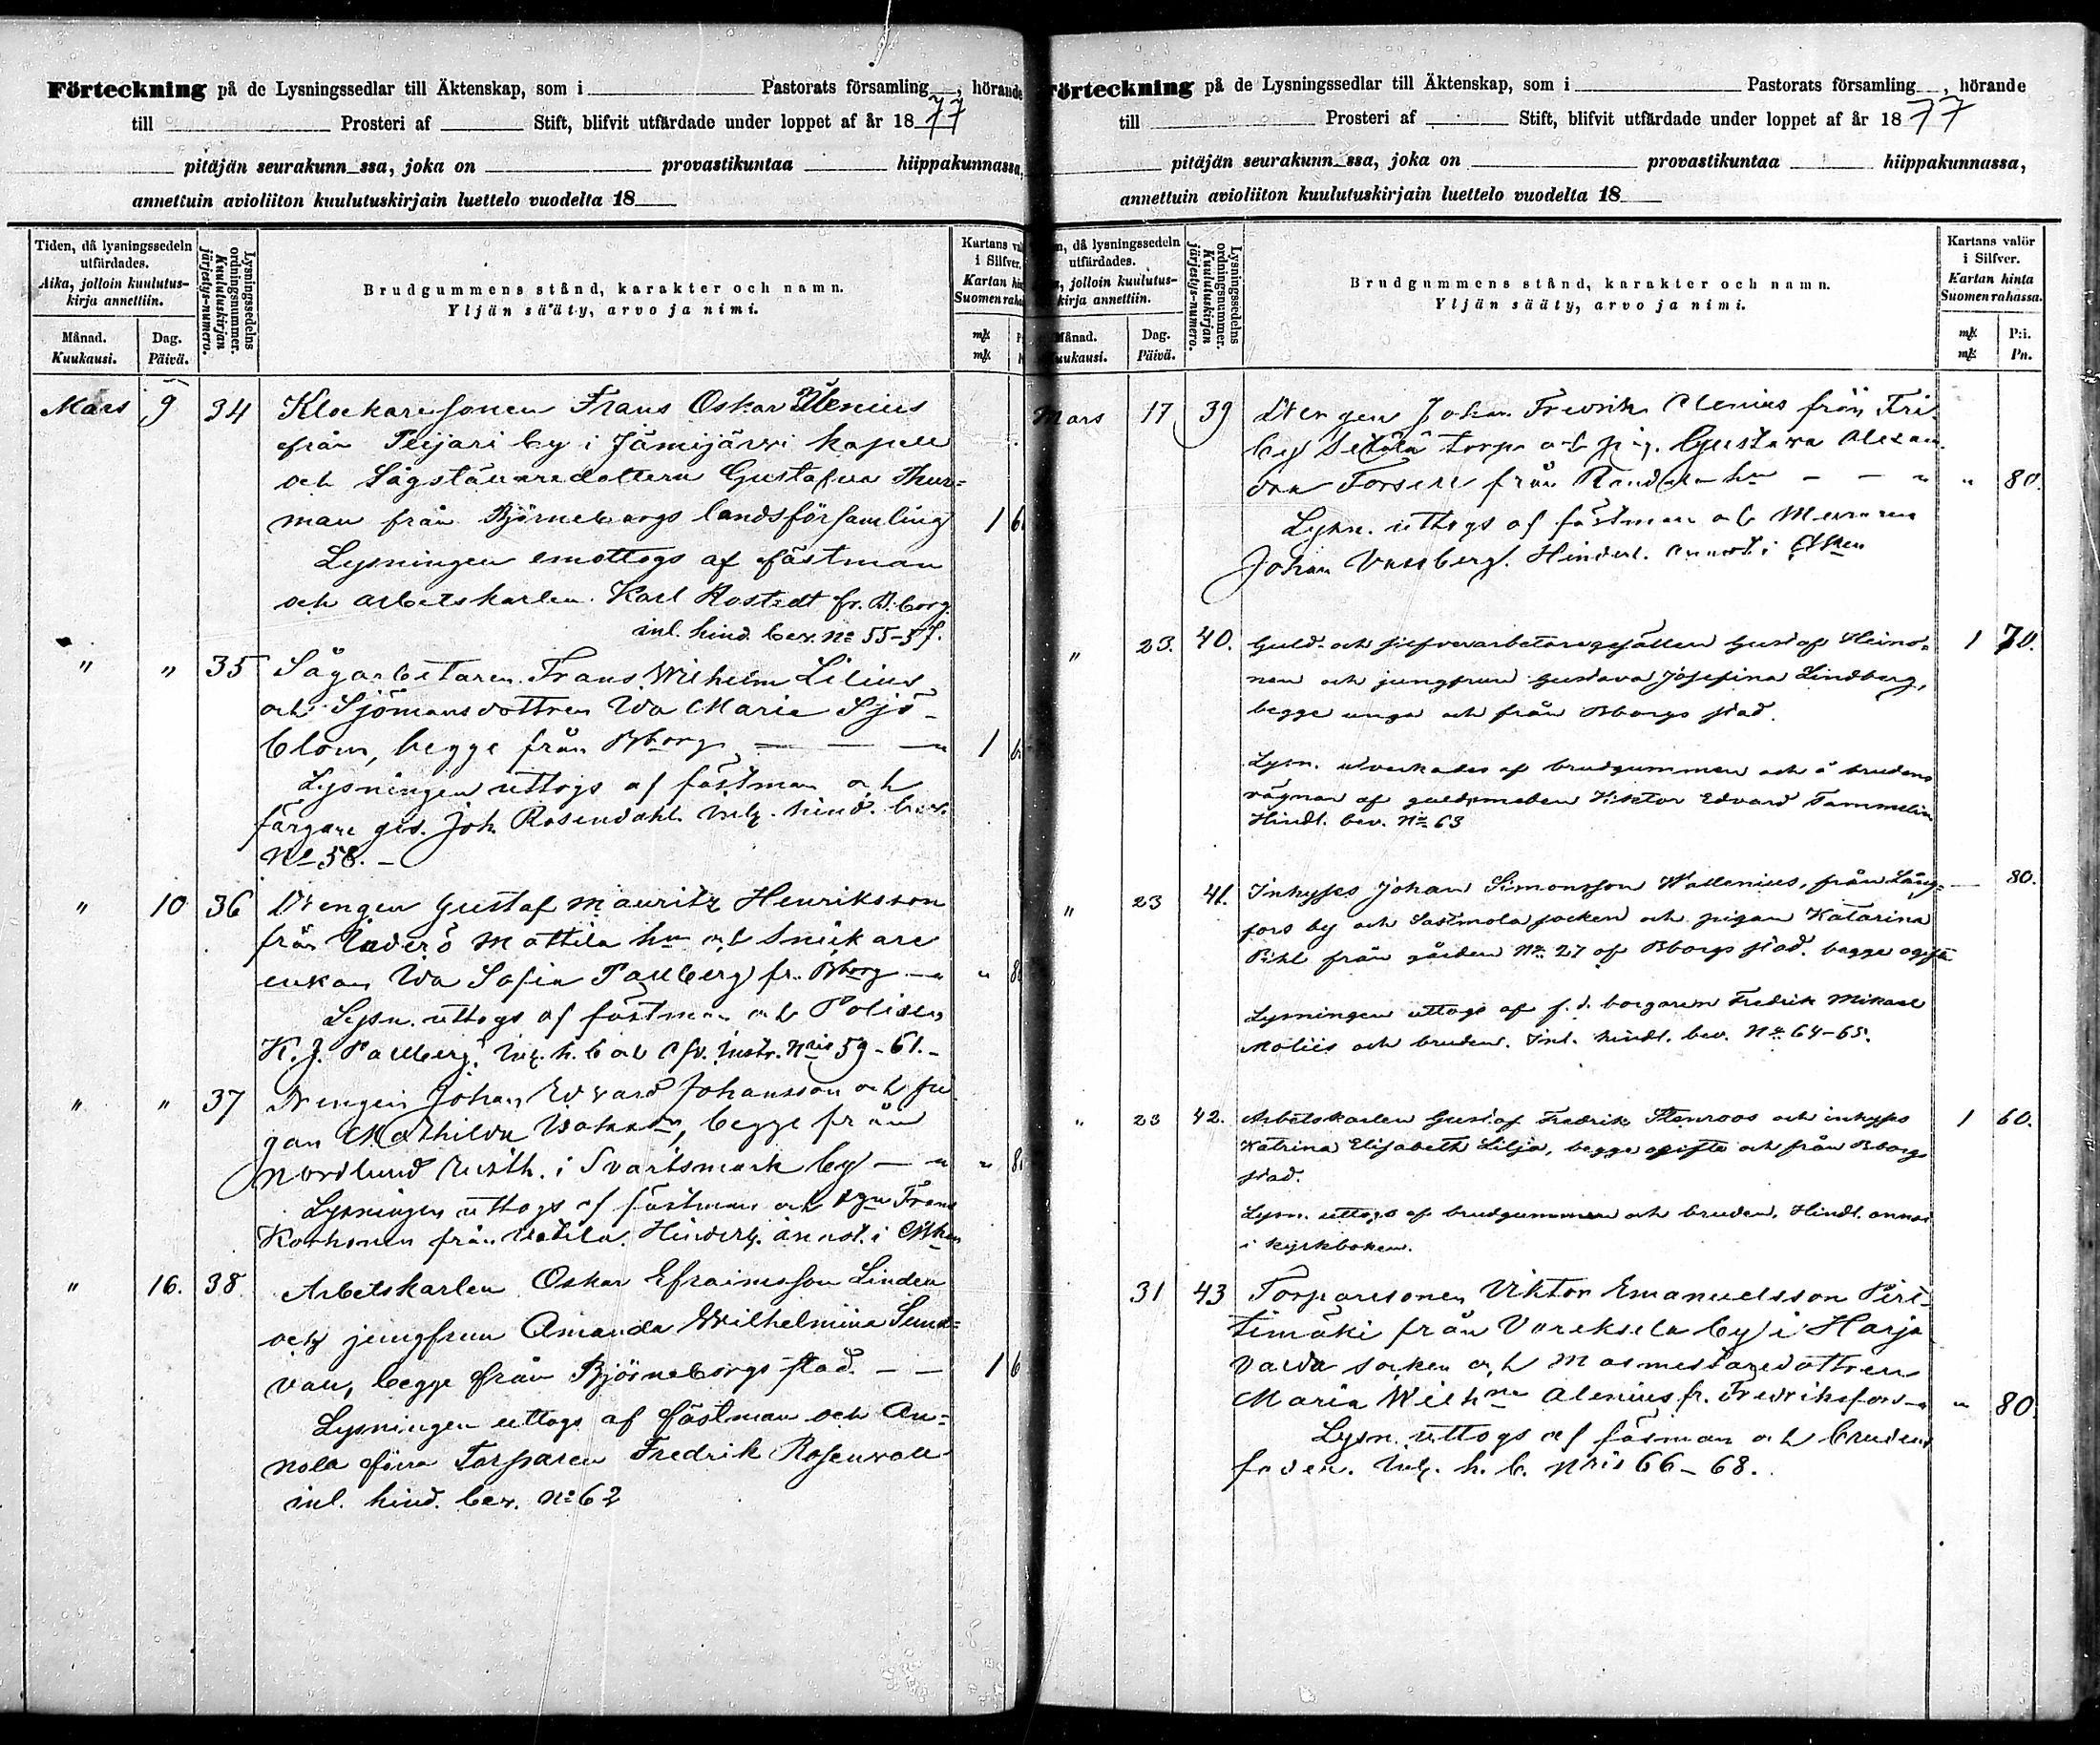 Förteckning på de Lysningssedlar till Äktenskap, som i Pastorats församling, hörande
till Prosteri af Stift, blifvit utfärdade under loppet af år 1877
pitäjän seurakunn ssa, joka on provastikuntaa hiippakunnassa,
annettuin avioliiton kuulutuskirjain luettelo vuodelta 18
Tiden, då lysningssedeln utfärdades.
Aika, jolloin kuulutuskirja annettiin.
Månad. Kuukausi.
Dag. Päivä.
Lysningssedelns ordningsnummer.
Kuulutuskirjan järjestys-numero.
Brudgummens stånd, karakter och namn.
Yljän sääty, arvo ja nimi.
Kartans
i Silfver.
Kartan
Suomen
mk
mk
Mars 9 34 Klockaresonen Frans Oskar
från Peijari by i Jämijärvi kapell
och Sågställaredottern Gustafva Thur=
man från Björneborgs landsförsamling 1
Lysningen emottogs af fästman
och arbetskarlen Karl Rostedt fr. B:borg.
inl. hind. bev. No 55-57.
" " 35 Sågarbetaren Frans Wilhelm Lilius
och Sjömansdottren Ida Maria Sjö-
blom, begge från Bborg 1
Lysningen uttogs af fästman och
färgare ges. Joh. Rosendahl. Inl. hind. bev.
No 58. -
" 10 36 Drengen Gustaf Mauritz Henriksson
från Inderö Mattila hn och Snickare
enkan Ida Sofia Pallberg fr. Bborg "
Lysn. uttogs af fästman och Polisen
K. J. Pallberg. Inl. h. b och afv. instr. Nris 59-61.-
" " 37 Drengen Johan Edvard Johansson och pi
gan Mathilda begge från
Nordlund i Svartsmark by - "
Lysningen uttogs af fästman och Frans
Korhonen från Hinderl. annot. i
" 16. 38. Arbetskarlen Oskar Efraimsson Linden
och jungfrun Amanda Wilhelmina Sund=
vall, begge från Björneborgs stad. - - 1
Lysningen uttogs af fästman och An=
nola förra Torparen Fredrik Rosenvall
inl. hind. bev. No 62
Förteckning på de Lysningssedlar till Äktenskap, som i Pastorats församling, hörande
till Prosteri af Stift, blifvit utfärdade under loppet af år 1877
pitäjän seurakunn ssa, joka on provastikuntaa hiippakunnassa,
annettuin avioliiton kuulutuskirjain luettelo vuodelta 18
då lysningssedeln utfärdades.
jolloin kuulutuskirja annettiin.
Månad. Kuukausi.
Dag. Päivä.
Lysningssedelns ordningsnummer.
Kuulutuskirjan järjestys-numero.
Brudgummens stånd, karakter och namn.
Yljän sääty, arvo ja nimi.
Kartans valör
i Silfver.
Kartan hinta
Suomen rahassa.
mk P:i.
mk Pn.
Mars 17 39 Drengen Johan Fredrik Alenius från Fri
by Setälä torp och pig. Gustava Alexan
dra Forsell från hn - - " 80.
Lysn. uttogs af fästman och Muraren
Johan Hinderl. annot. i
" 23. 40. Guld- och silfverarbetaregesällen Gustaf Heino= 1 70.
nen och jungfrun Gustava Josefina Lindberg,
begge unga och från Bborgs stad.
Lysn. utverkades af brudgummen och å brudens
vägnar af guldsmeden Viktor Edvard Tammelin
Hindl. bev. No 63
" 23 41. Inhyses Johan Simonsson Wallenius, från Lång= — 80.
fors by och Sastmola socken och pigan Katarina
Pihl från gården No 27 af Bborgs stad. begge ogifta
Lysningen uttogs af f. d. borgaren Fredrik Mikael
Moliis och bruden. Inl. hindl. bev. No 64-65.
" 23 42. Arbetskarlen Gustaf Fredrik Stenroos och inhyses 1 60.
Katrina Elisabeth Lilja, begge ogifta och från Bborgs
stad.
Lysn. uttogs af brudgummen och bruden. Hindl. annot
i kyrkboken.
31 43 Torparesonen Viktor Emanuelsson Pirt-
timäki från Vareksela by i Harja
valda socken och Masmestaredottren
Maria Wilhna Alenius fr. Fredriksfors " 80.
Lysn. uttogs af fäsman och brudens
fader. Inl. h. b. Nris 66-68.